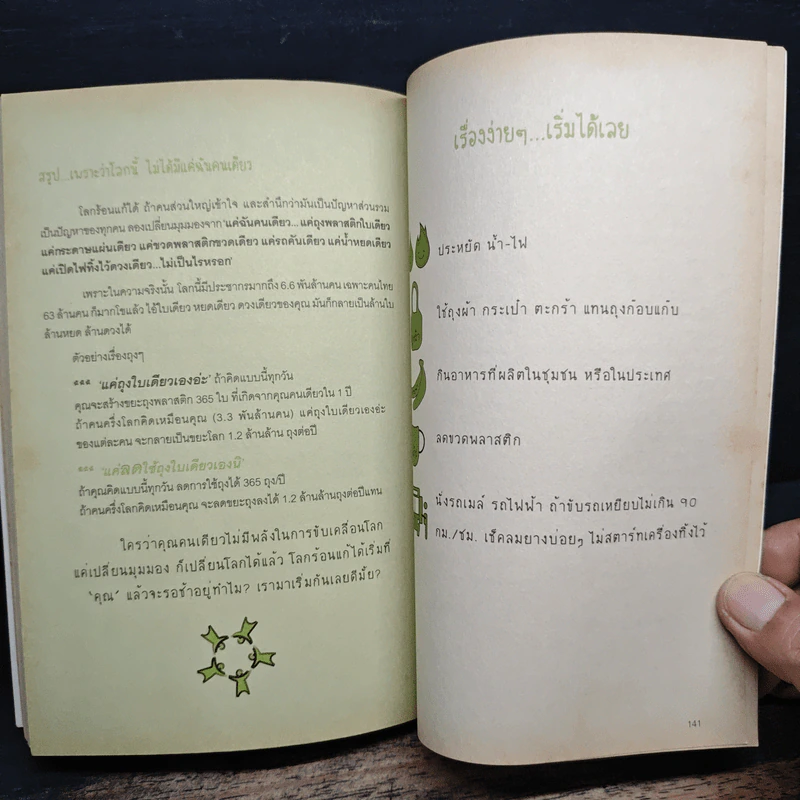 สรุป...เพราะว่าโลกนี้ ไม่ได้มีแค่ฉันคนเดียว
โลกร้อนแก้ได้ ถ้าคนส่วนใหญ่เข้าใจ และสำนึกว่ามันเป็นปัญหาส่วนรวม
เป็นปัญหาของทุกคน ลองเปลี่ยนมุมมองจาก 'แค่ฉันคนเดียว... แค่ถุงพลาสติกใบเดียว
แค่กระดาษแผ่นเดียว แค่ขวดพลาสติกขวดเดียว แค่รถคันเดียว แค่น้ำหยดเดียว
แค่เปิดไฟทิ้งไว้ดวงเดียว...ไม่เป็นไรหรอก'
เพราะในความจริงนั้น โลกนี้มีประชากรมากถึง 6.6 พันล้านคน เฉพาะคนไทย
63 ล้านคน ก็มากโขแล้ว ไอ้ใบเดียว หยดเดียว ดวงเดียวของคุณ มันก็กลายเป็นล้านใบ
ล้านหยด ล้านดวงได้
ตัวอย่างเรื่องถุงๆ
'แค่ถุงใบเดียวเองอ่ะ' ถ้าคิดแบบนี้ทุกวัน
คุณจะสร้างขยะถุงพลาสติก 365 ใบ ที่เกิดจากคุณคนเดียวใน 1 ปี
ถ้าคนครึ่งโลกคิดเหมือนคุณ (3.3 พันล้านคน) แค่ถุงใบเดียวเองอ่ะ
ของแต่ละคน จะกลายเป็นขยะโลก 1.2 ล้านล้าน ถุงต่อปี
'แค่ลดใช้ถุงใบเดียวเองนิ'
ถ้าคุณคิดแบบนี้ทุกวัน ลดการใช้ถุงได้ 365 ถุง/ปี
ถ้าคนครึ่งโลกคิดเหมือนคุณ จะลดขยะถุงลงได้ 1.2 ล้านล้านถุงต่อปีแทน
ใครว่าคุณคนเดียวไม่มีพลังในการขับเคลื่อนโลก
แค่เปลี่ยนมุมมอง ก็เปลี่ยนโลกได้แล้ว โลกร้อนแก้ได้เริ่มที่
'คุณ' แล้วจะรอช้าอยู่ทำไม? เรามาเริ่มกันเลยดีมั้ย?
เรื่องง่ายๆ...เริ่มได้เลย
ประหยัด น้ำ-ไฟ
ใช้ถุงผ้า กระเป๋า ตะกร้า แทนถุงก๊อบแก๊บ
กินอาหารที่ผลิตในชุมชน หรือในประเทศ
ลดขวดพลาสติก
นั่งรถเมล์ รถไฟฟ้า ถ้าขับรถเหยียบไม่เกิน ๙๐
กม./ชม. เช็คลมยางบ่อยๆ ไม่สตาร์ทเครื่องทิ้งไว้
141